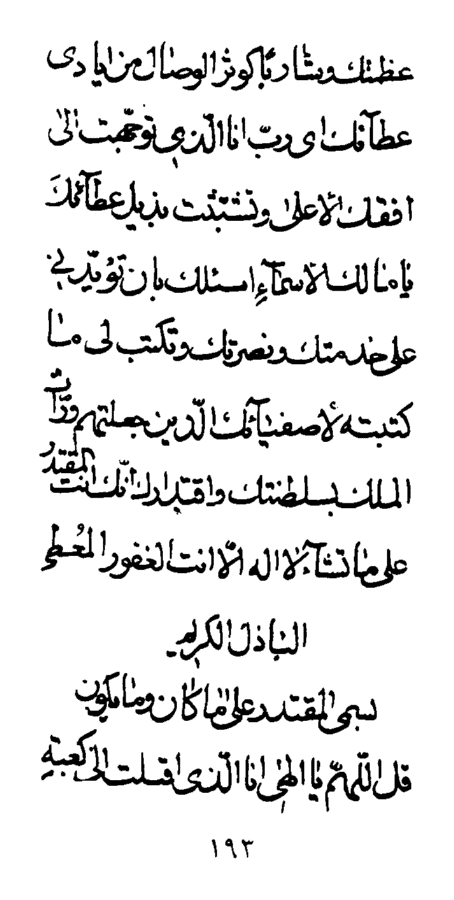 عظمتك وشاربًا كوثر الوصال من ايادى
عطآئك اى ربّ انا الّذى توجّهت الى
افقك الاعلى وتشبّثت بذيل عطآئك
يا مالك الاسمآء اسئلك بان تؤيّدنى
على خدمتك ونصرتك وتكتب لى ما
كتبته لاصفيآئك الّذين جعلتهم ورّاث
الملك بسلطنتك واقتدارك انّك انت المقتدر
على ما تشآء لا اله الّا انت الغفور المعطى
الباذل الكريم
بسمى المقتدر على ما كان وما يكون
قل اللّهمّ يا الهى انا الّذى اقبلت الى كعبة
١٩٣